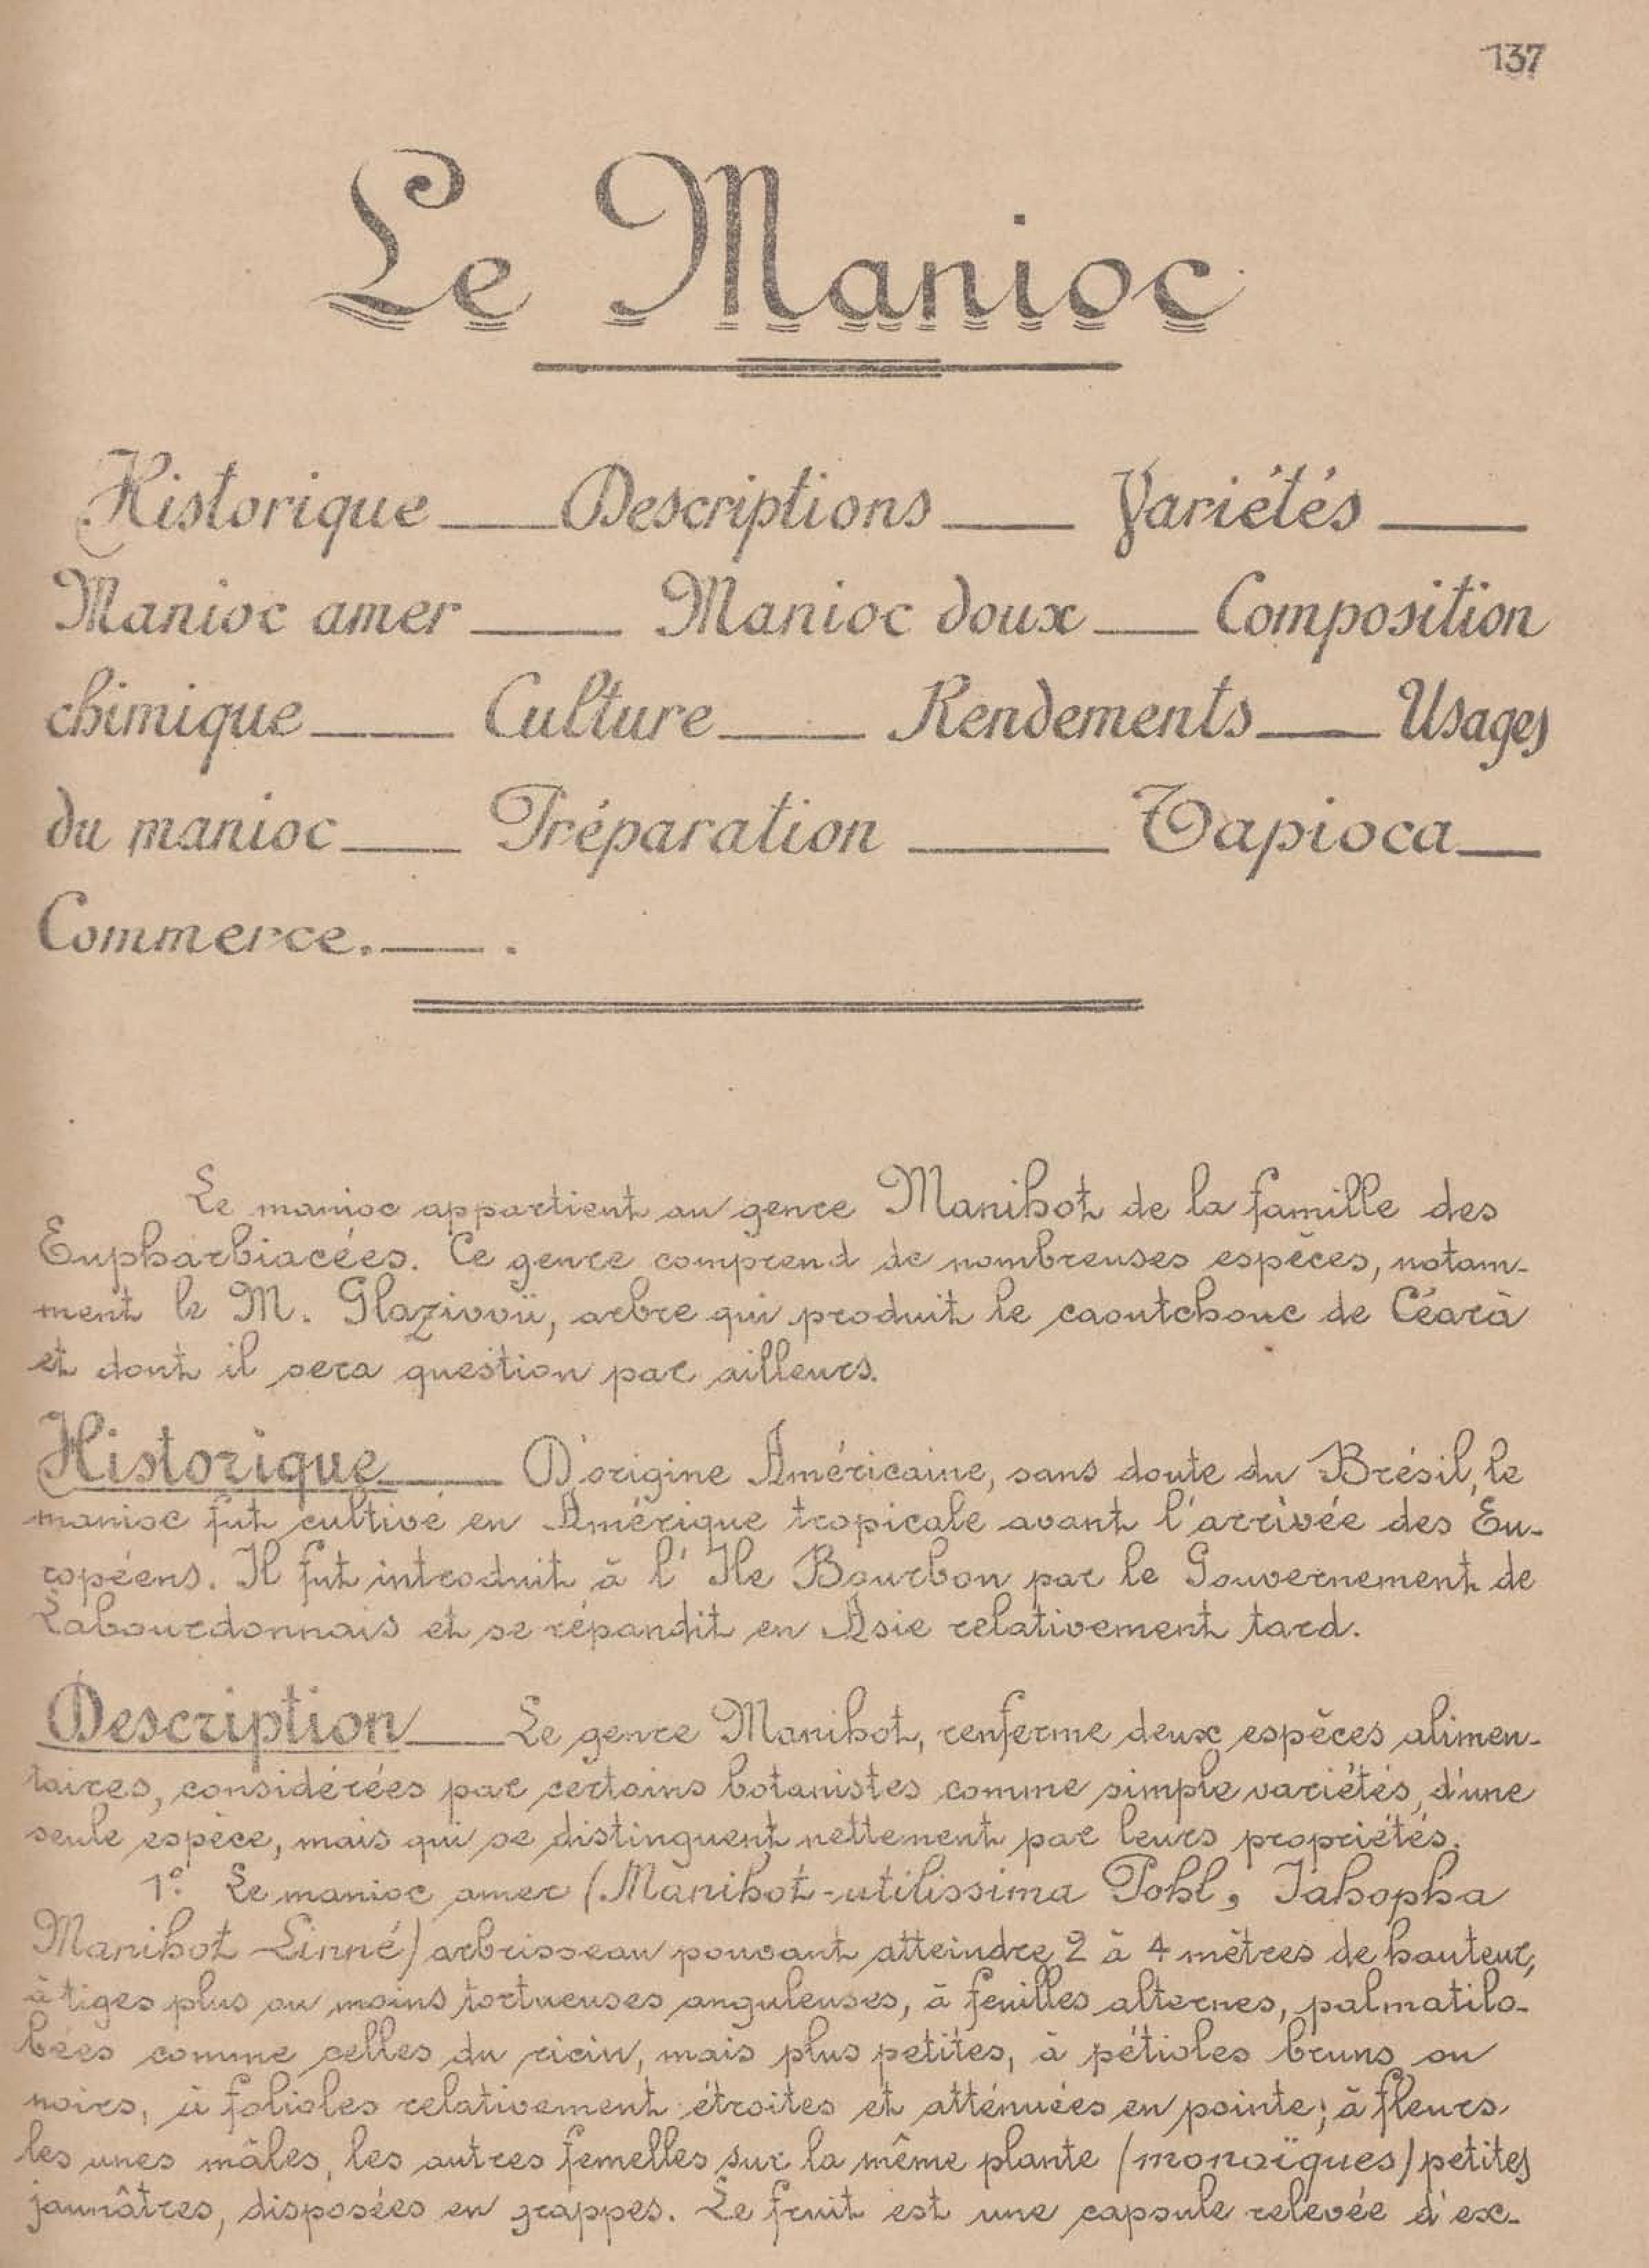 137
Le Manioc
Historique ___ Descriptions ___ Variétés ___
Manioc amer ___ Manioc doux ___ Composition
chimique ___ Culture ___ Rendements ___ Usages
du manioc ___ Préparation ___ Tapioca ___
Commerce. ___ .
Le manioc appartient au genre Manihot de la famille des
Eupharbiacées. Ce genre comprend de nombreuses espèces, notam-
ment le M. Glaziovü, arbre qui produit le caoutchouc de Céarà
et dont il sera question par ailleurs.
Historique ___ D'origine Américaine, sans doute du Brésil, le
manioc fut cultivé en Amérique tropicale avant l'arrivée des Eu-
ropéens. Il fut introduit à l'Ile Bourbon par le Gouvernement de
Labourdonnais et se répandit en Asie relativement tard.
Description ___ Le genre Manihot, renferme deux espèces alimen-
taires, considérées par certains botanistes comme simple variétés, d'une
seule espèce, mais qui se distinguent nettement par leurs propriétés.
1º Le manioc amer (Manihot-utilissima Pohl, Jahopha
Manihot Linné) arbrisseau pouvant atteindre 2 à 4 mètres de hauteur,
à tiges plus ou moins tortueuses anguleuses, à feuilles alternes, palmatilo-
bées comme celles du ricin, mais plus petites, à pétioles bruns ou
noirs, à folioles relativement étroites et atténuées en pointe; à fleurs
les unes mâles, les autres femelles sur la même plante (monoïques) petites
jaunâtres, disposées en grappes. Le fruit est une capsule relevée d'ex-